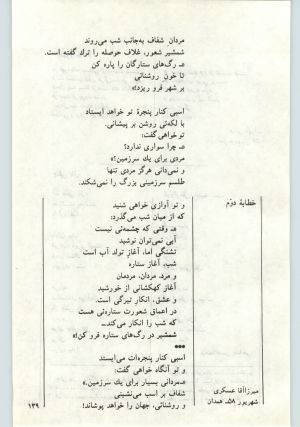 مردان شفاف به‌جانب شب می‌روند
شمشیر شعور، غلاف حوصله را ترك گفته است.
ـ رگ‌های ستارگان را پاره کن
تا خون روشنائی
بر شهر فرو ریزد!»
اسبی کنار پنجرهٔ تو خواهد ایستاد
با لکه‌ئی روشن بر پیشانی.
تو خواهی گفت:
«ـ چرا سواری ندارد؟
مردی برای یك سرزمین!»
و نمی‌دانی هرگز مردی تنها
طلسم سرزمینی بزرگ را نمی‌شکند.
خطابهٔ دوّم
و تو آوازی خواهی شنید
که از میان شب می‌گذرد:
«ـ وقتی که چشمه‌ئی نیست
آبی نمی‌توان نوشید
تشنگی اما، آغاز تولد آب است
شب، آغاز ستاره
و مرد، مردان، مردمان
آغاز کهکشانی از خورشید
و عشق، انکار تیرگی است.
در اعماق شعورت ستاره‌ئی هست
که شب را انکار می‌کند...
شمشیر در رگ‌های ستاره فرو کن!»
●●●
اسبی کنار پنجره‌ات می‌ایستد
و تو آنگاه خواهی گفت:
«ـ مردانی بسیار برای یك سرزمین.»
شفاف بر اسب می‌نشینی
و روشنائی، جهان را خواهد پوشاند!
میرزاآقا عسکری
شهریور ۵۸ـ همدان
۱۳۹